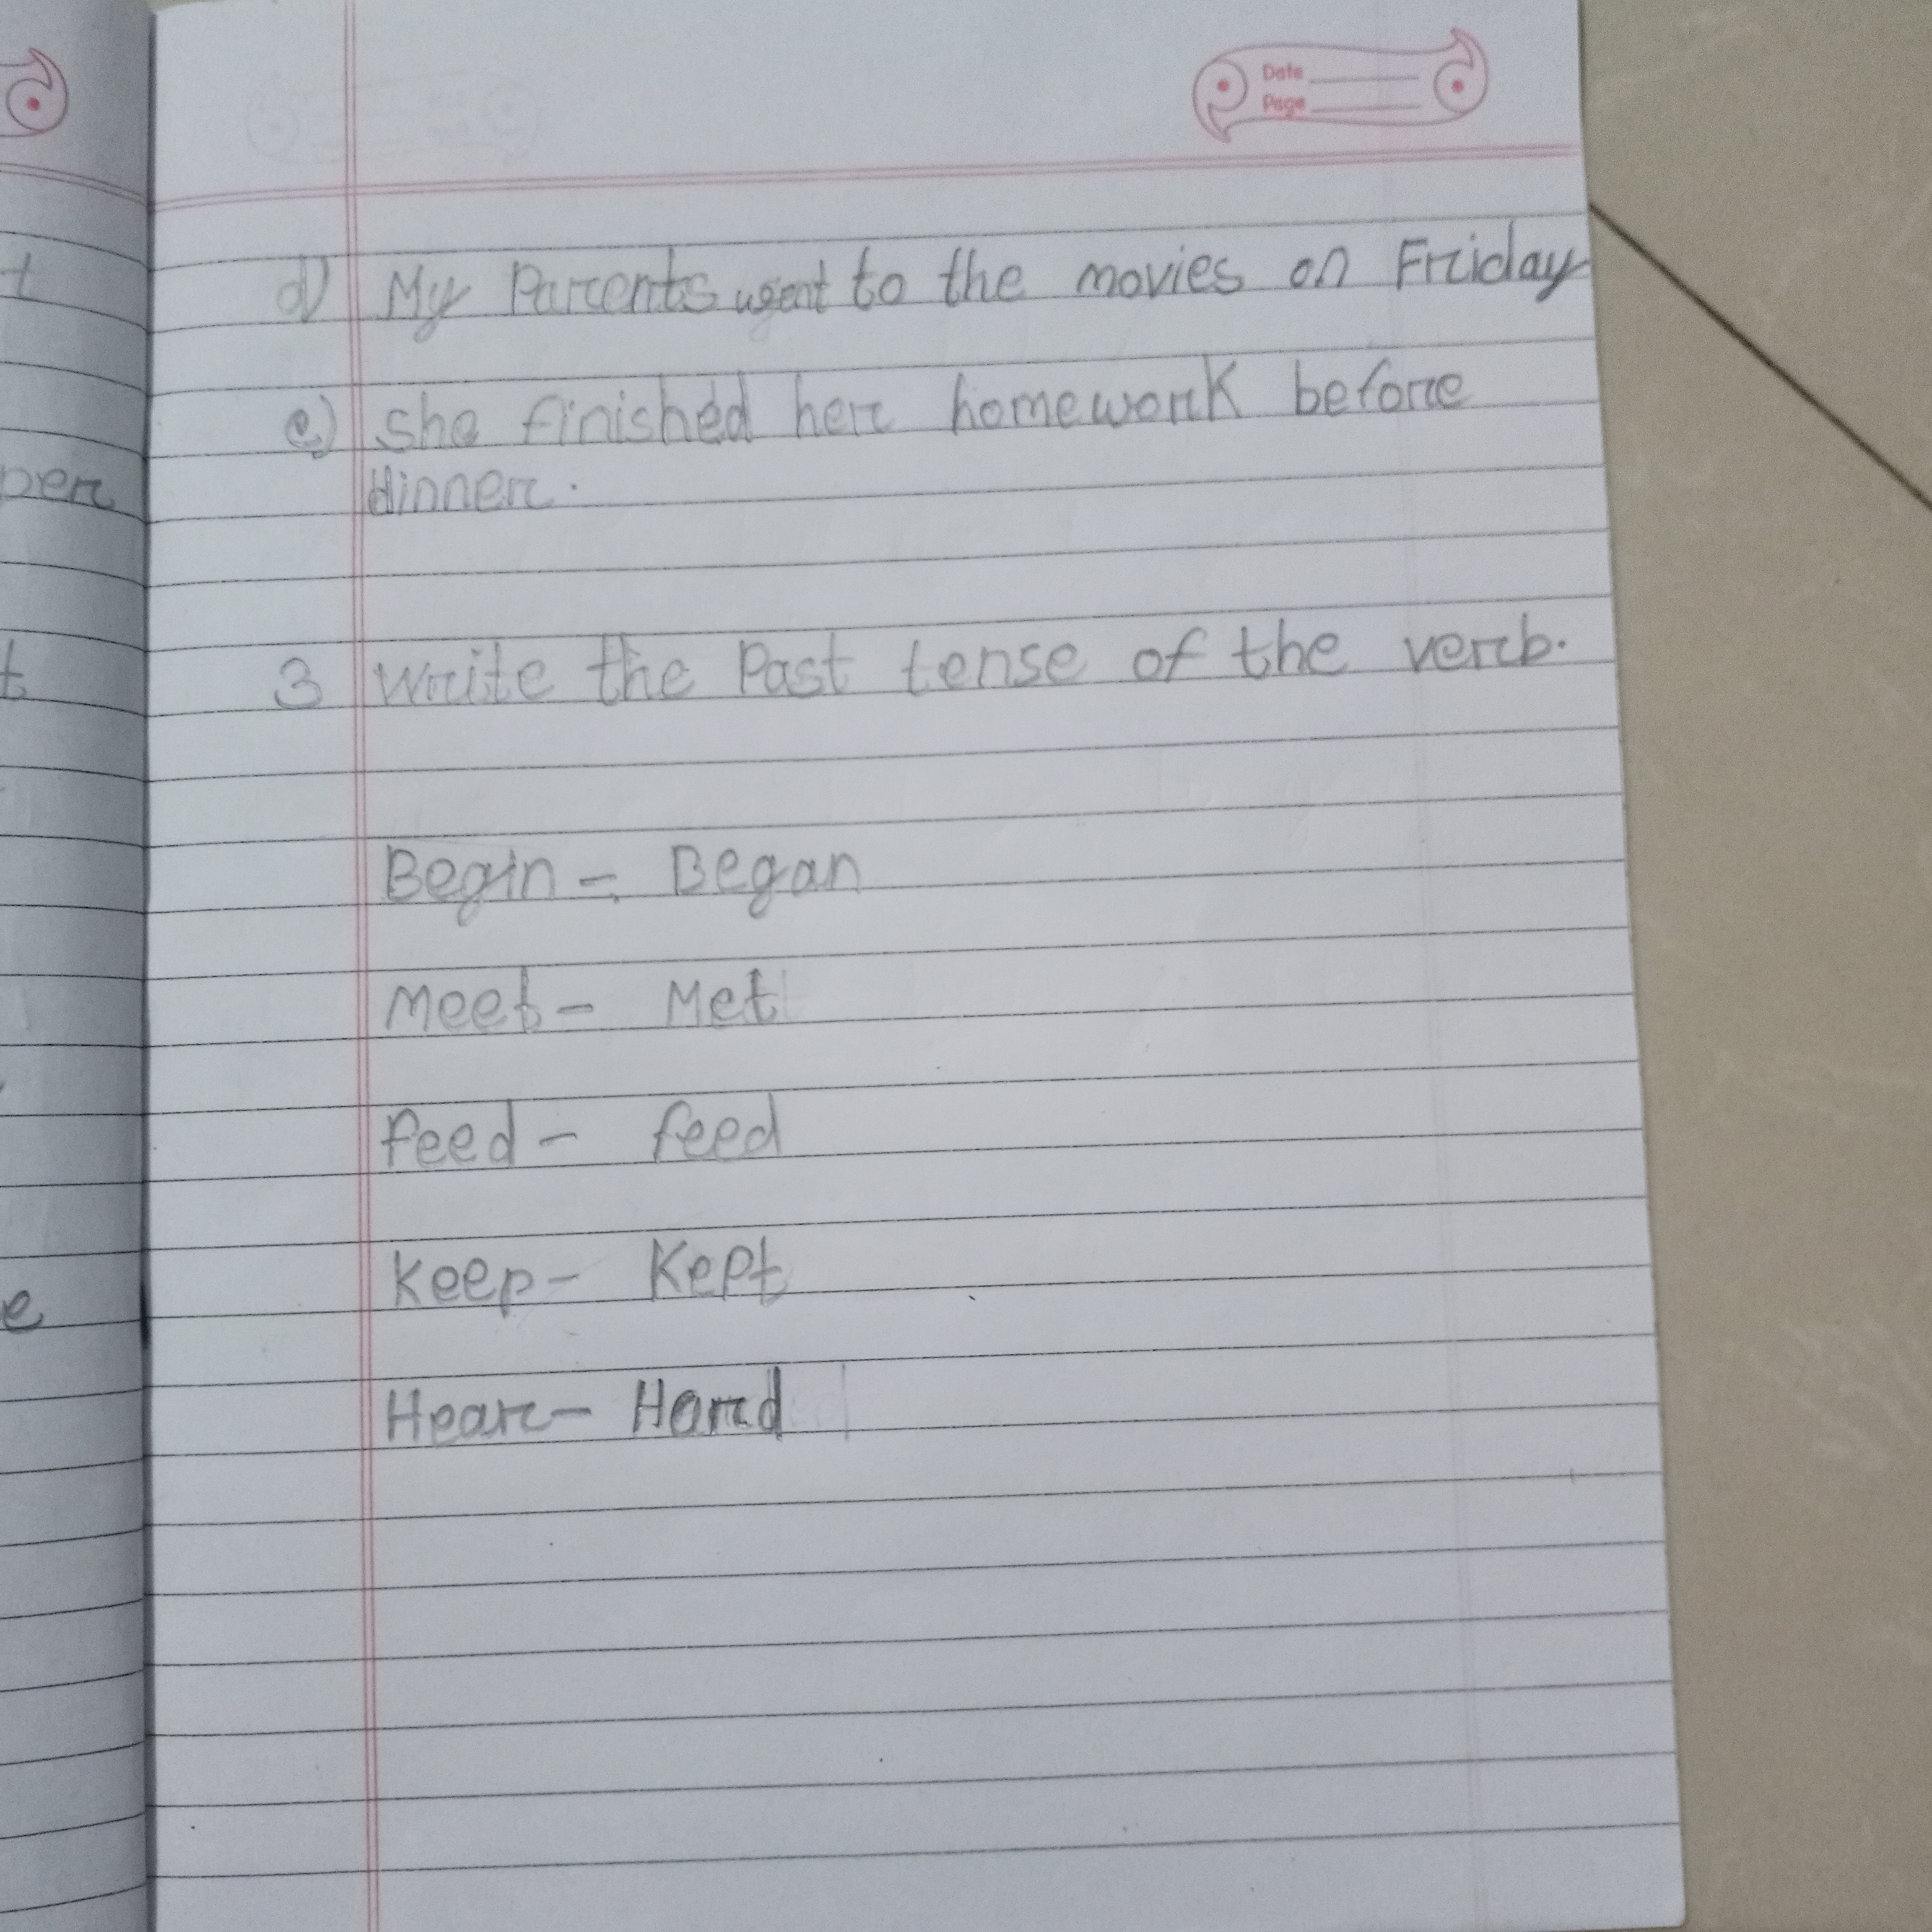 Date
Page
d) My Parents went to the movies on Friday
e) She finished her homework before
dinner.
3 Write the Past tense of the verb.
Begin - Began
Meet - Met
feed - feed
Keep - Kept
Hear - Hard
t
per
t
e